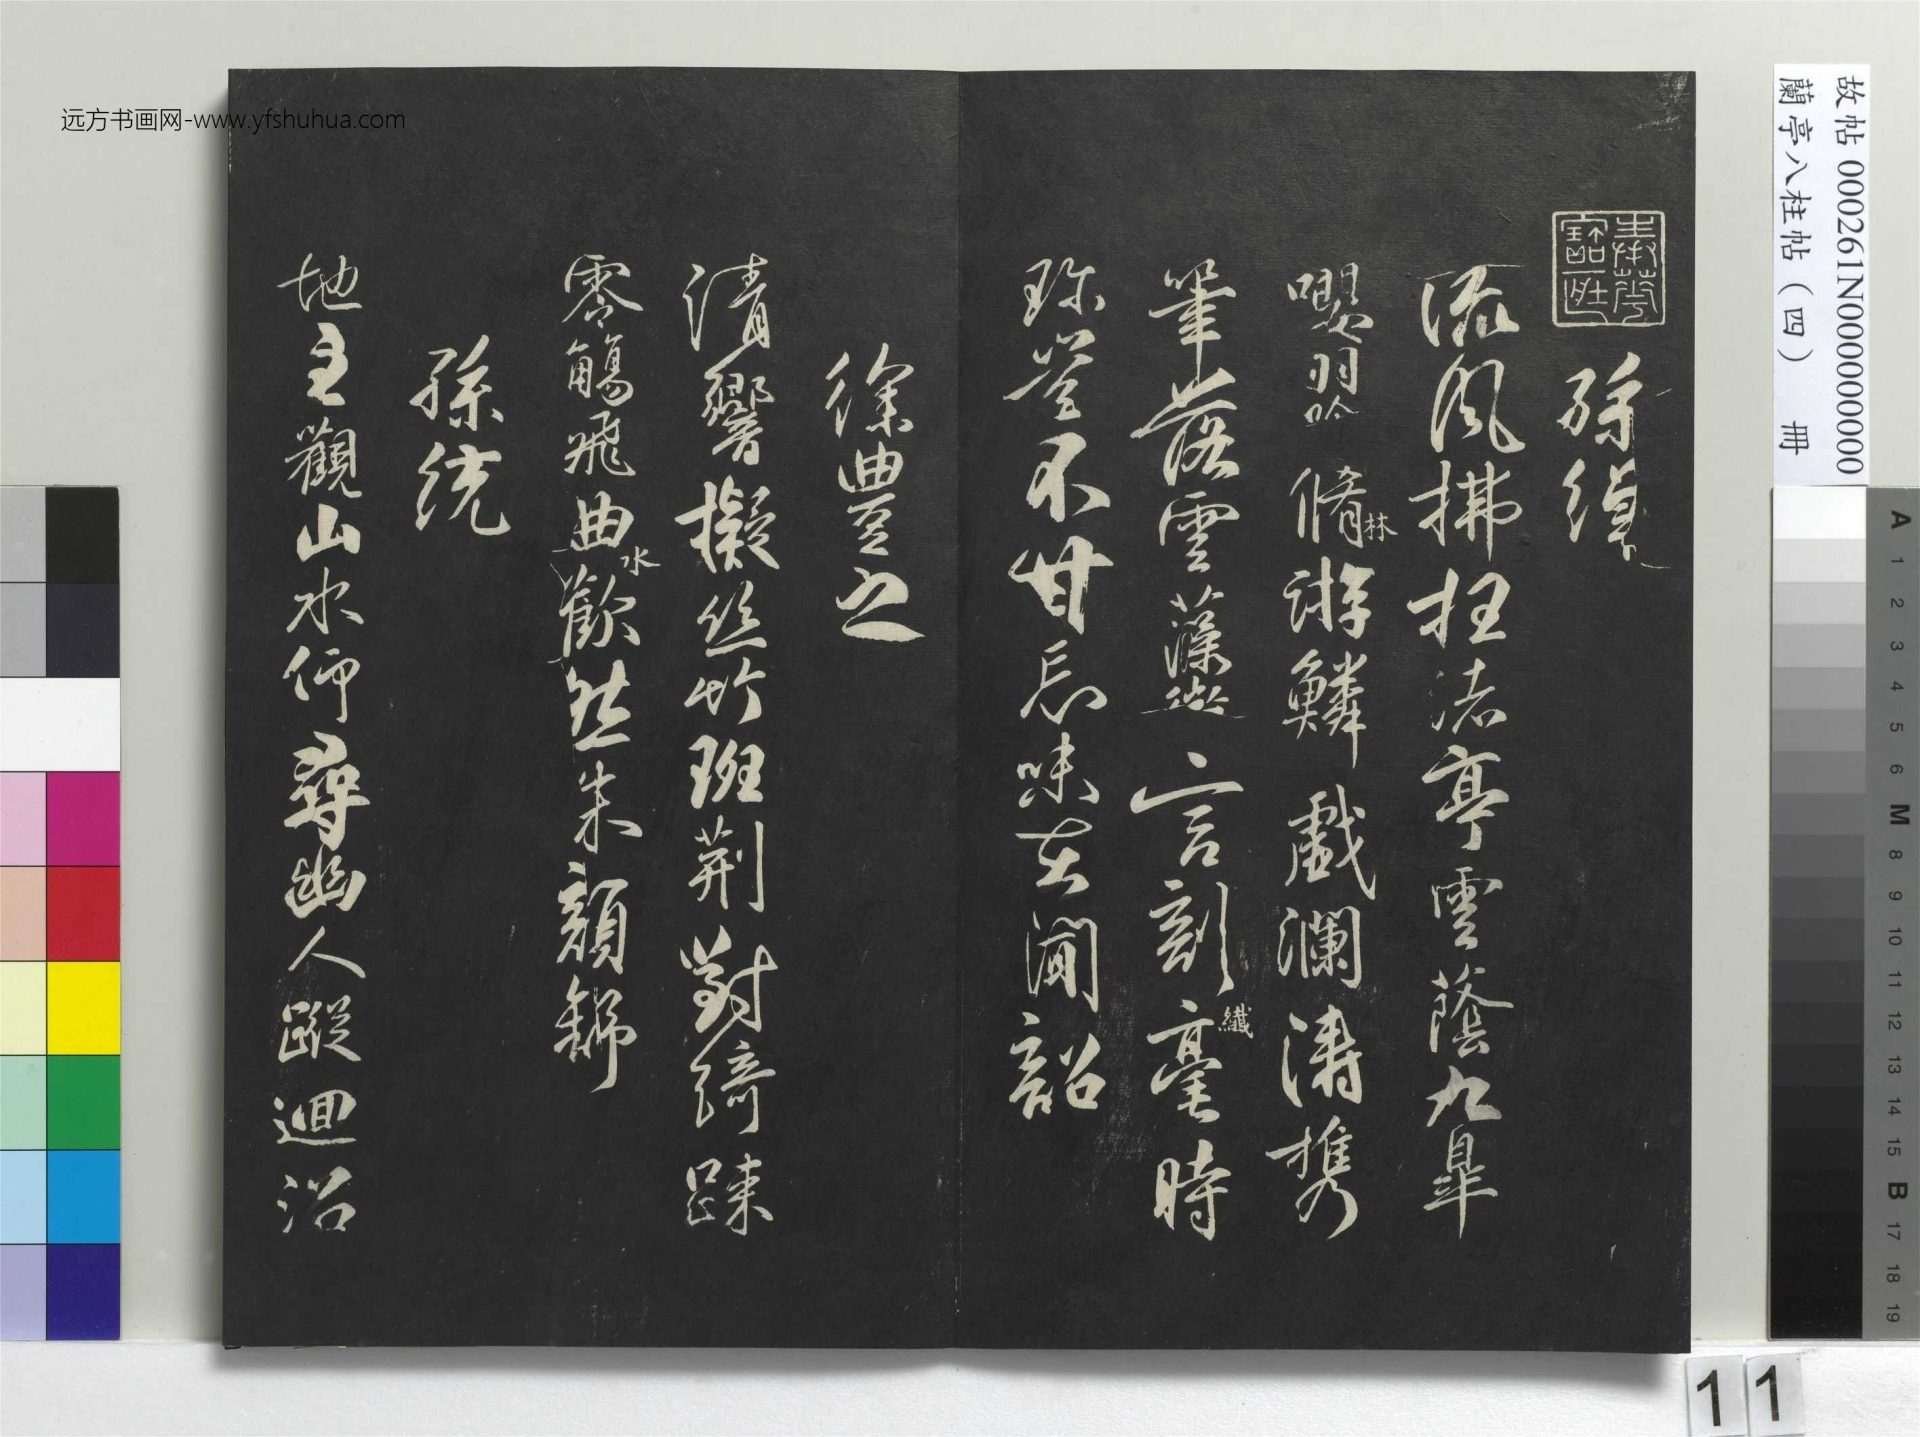 远方书画网-www.yfshuhua.com
孫綽
流風拂枉渚亭雲蔭九皐
嚶羽吟脩林游鱗戲瀾濤攜
筆落雲藻微言剖纖毫時
珎豈不甘忘味在聞韶
徐豐之
清響擬絲竹班荊對綺踈
零觴飛曲水歡然朱顏舒
孫統
地主觀山水仰尋幽人蹤迴沼
故帖 000261N000000000
蘭亭八柱帖（四） 冊
A 1 2 3 4 5 6 M 8 9 10 11 12 13 14 15 B 17 18 19
1 1